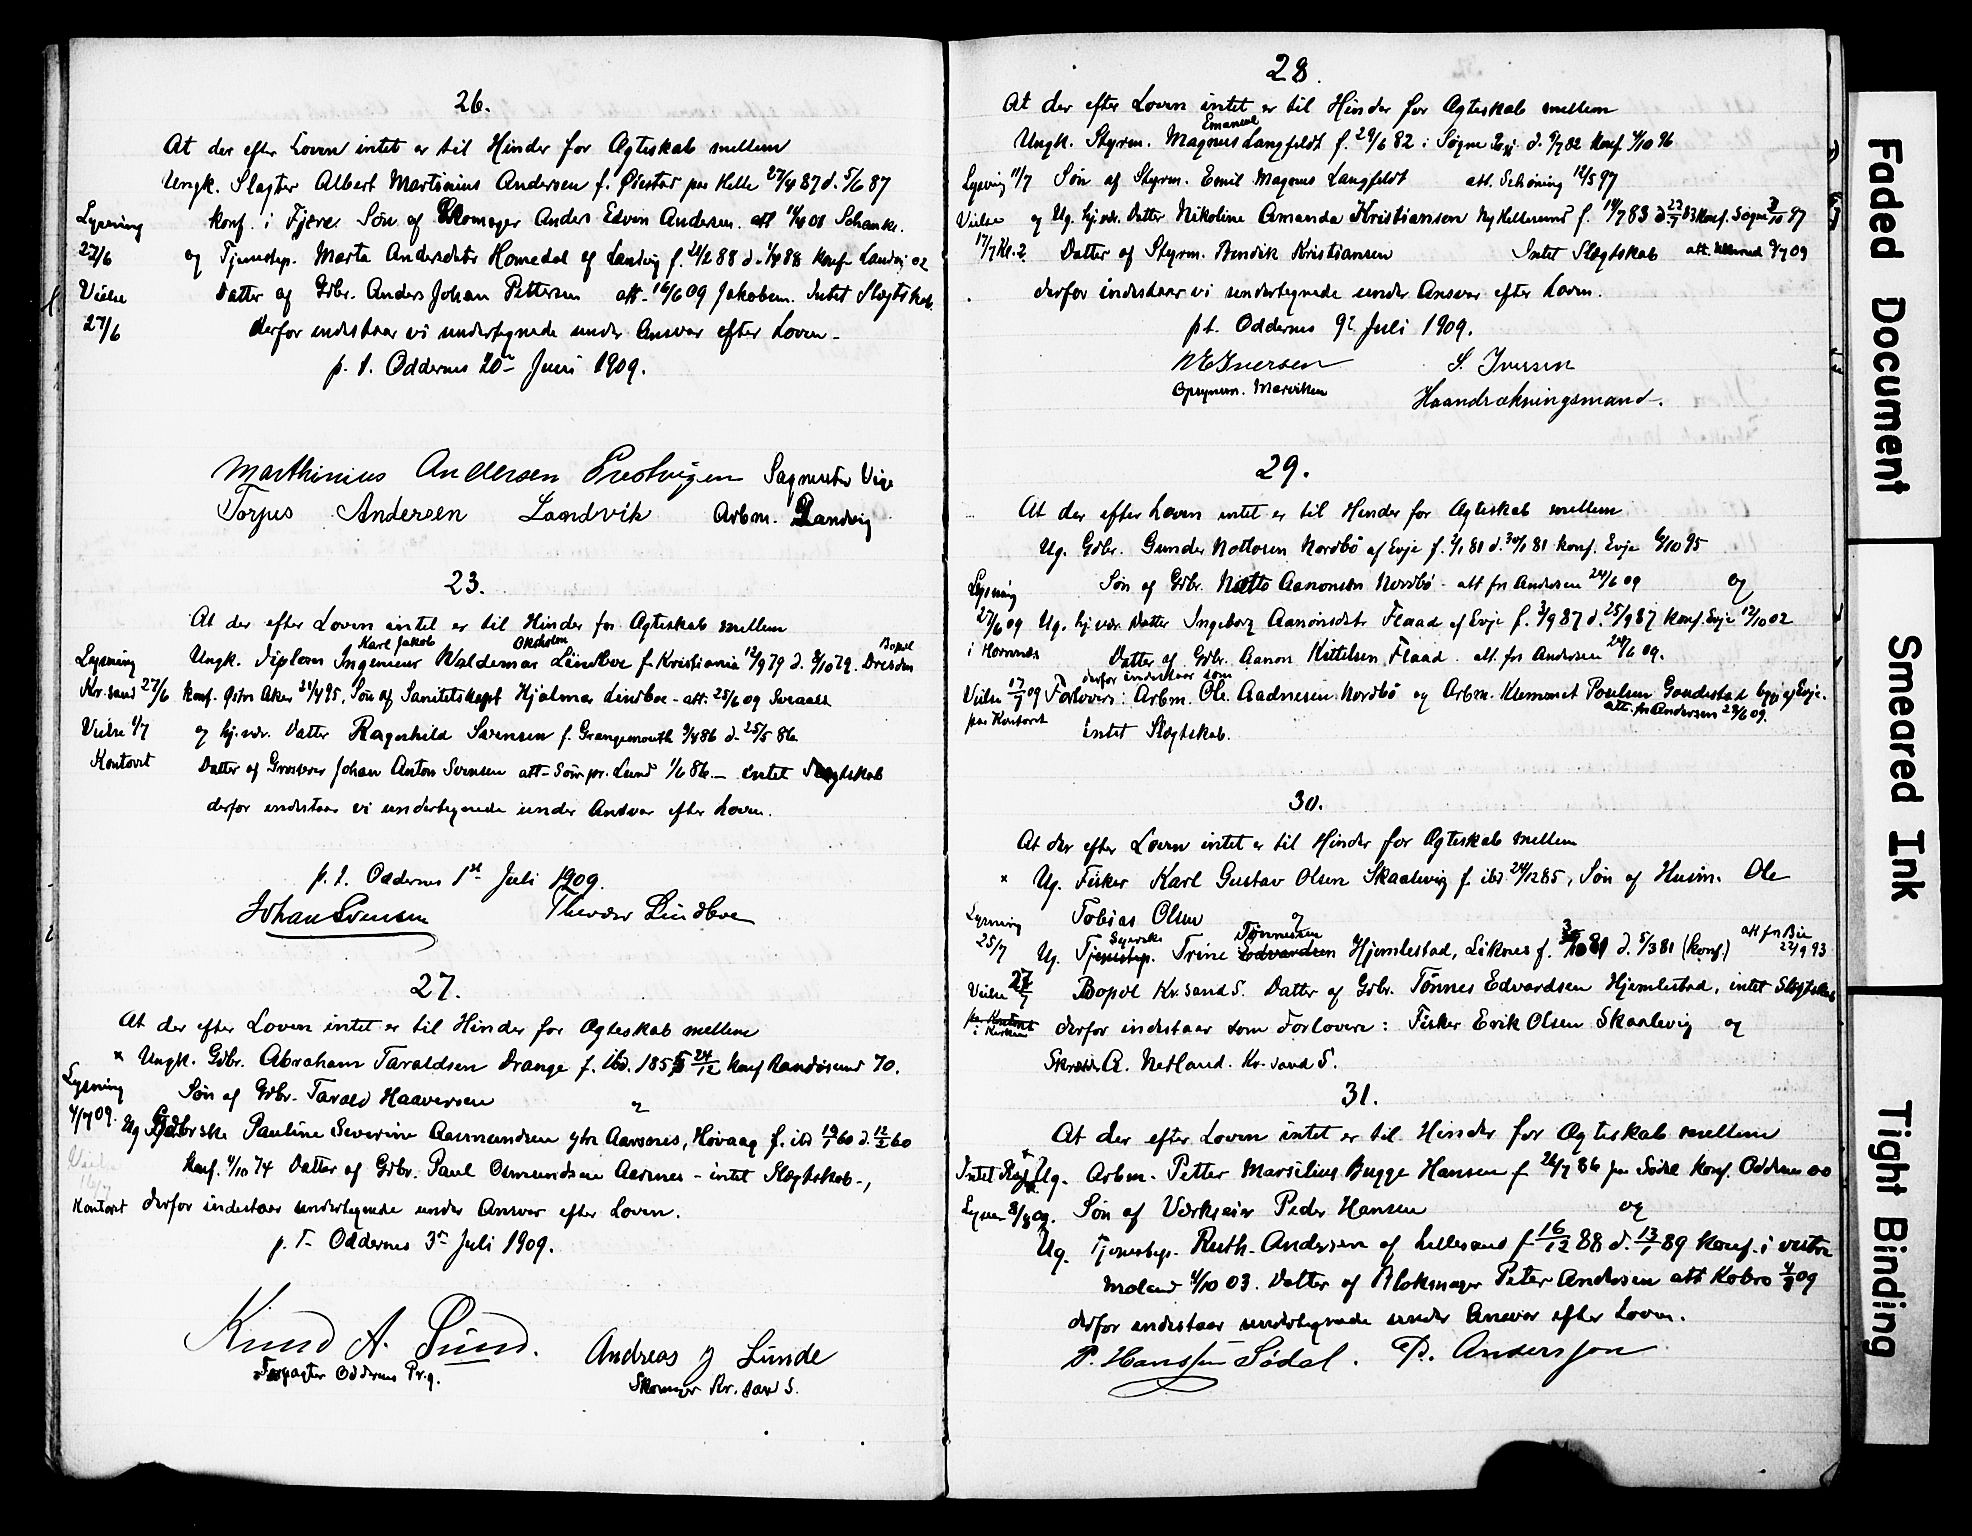 26.
At der efter Loven intet er til Hinder for Ægteskab mellem
Ungk. Slagter Albert Martinius Andersen f. Øiestad paa Helle 27/4 87 d. 5/6 87
konf. i Fjære Søn af Skomager Anders Edvin Andersen. att 16/4 01 Schanke.
Lysning
27/6
og Tjenestep. Marta Andersdatr Homedal af Landvig f. 21/2 88 d. 1/4 88 konf Landvi 02
Vielse
27/6
Datter af Gdbr. Anders Johan Pettersen att. 16/6 09 Jakobsen. Intet Slægtskab.
derfor indestaar vi undertegnede under Ansvar efter Loven.
p. t. Oddernes 20de Juni 1909.
Marthinius Andersen Prestvigen Sagmester Vige
Torjus Andersen Landvik Arbm. Landvig
23.
At der efter Loven intet er til Hinder for Ægteskab mellem
Karl Jakob
Bopæl
Lysning
Kr.sand 27/6
Vielse 1/7
Kontoret
Ungk. diplom Ingeniør Waldemar Lindboe f. Kristiania 12/9 79 d. 9/10 79. Dresden
konf. Østre Aker 21/4 95, Søn af Sanitetskapt Hjalmar Lindboe - att. 25/6 09
og hj.vær. Datter Ragnhild Svensen f. Grangemouth 9/4 86 d. 25/5 86
Datter af Grosserer Johan Anton Svensen att- Sømpr. Lund 1/6 86 - intet Slægtskab
derfor indestaar vi undertegnede under Ansvar efter Loven.
p. t. Oddernes 1st Juli 1909.
Johan Svensen Theodor Lindboe
27.
At der efter Loven intet er til Hinder for Ægteskab mellem
x Ungk. Gdbr. Abraham Taraldsen Drange f. ibd. 1855 24/12 konf Randøsund 70.
Lysning
4/7 09.
Søn af Gdbr. Tarald Haaversen og
Ug Pauline Severine Aasmundsen ytre Aarsnes, Høvaag f. ibd 19/1 60 d. 12/2 60
Vielse
Kontoret
konf. 4/10 74 Datter af Gdbr. Paul Osmundsen Aarsnes - intet Slægtskab -,
derfor indestaar undertegnede under Ansvar efter Loven.
p. T. Oddernes 3de Juli 1909.
Knud A. Lund. Andreas J Lunde
Forpagter Oddernes Pr.g. Skomager Kr.sand S.
28.
At der efter Loven intet er til Hinder for Ægteskab mellem
Emanuel
Ungk. Styrm. Magnus Langfeldt f. 29/6 82 i Søgne d. 9/7 82 konf. 4/10 96
Lysnig 11/7
Søn af Styrm. Emil Magnus Langfeldt att. Schøning 12/5 97
Vielse
17/7 Kl. 2
og Ug. hj.vær. Datter Nikoline Amanda Kristiansen Ny Hellesund f. 14/7 83 d 22/7 83 konf. Søgne 3/10 97
Datter af Styrm. Bendik Kristiansen Intet Slægtskab att. 9/7 09
derfor indestaar vi undertegnede under Ansvar efter Loven.
p t. Oddernes 9de Juli 1909.
N E Iversen S. Iversen
Opsynsm. Marviken Haandrækningsmand.
29.
At der efter Loven intet er til Hinder for Ægteskab mellem
Ug. Gdbr. Gunder Nottosen Nordbö af Evje f. 2/1 81 d. 30/1 81 konf. Evje 6/10 95
Lysning
27/6 09
i Hornnes
Søn af Gdbr. Notto Aanonsen Nordbö - att fr Andersen 24/6 09 og
Ug. hj.vær Datter Ingeborg Aanonsdatr Flaad af Evje f. 3/9 87 d. 25/9 87 konf. Evje 12/10 02
Datter af Gdbr. Aanon Kittelsen Flaad. att. fr Andersen 24/6 09.
derfor indestaar som
Vielse 17/7 09
paa Kontoret
Forlovere: Arbm. Ole Aadnesen Nordbö og Arbm. Klemmet Poulsen Gaudestad begge af Evje.
att. fr Andersen 29/6 09.
intet Slægtskab.
30.
At der efter Loven intet er til Hinder for Ægteskab mellem
x Ug. Fisker Karl Gustav Olsen Skaalevig f. ibd. 24/12 85, Søn af Husm. Ole
Lysning
25/7
Tobias Olsen og
Syerske Tønnesen att fr Bie
Ug. Tjenestep. Trine Edvardsen Hjemlestad, Liknes f. d. 5/3 81 (konf.) 22/9 93
Vielse 27/7
Bopæl Kr.sand S. Datter af Gdbr. Tönnes Edvardsen Hjemlestad, intet Slægtskab
paa Kontoret
i Kirken
derfor indestaar som Forlovere: Fisker Erik Olsen Skaalevig og
A. Netland. Kr.sand S.
31.
At der efter Loven intet er til Hinder for Ægteskab mellem
Intet
x
Ug. Arbm. Petter Marsilius Bugge Hansen f 26/7 86 paa Sødal konf. Oddernes 00
Lysn 8/8 09.
Søn af Værkseier Peder Hansen og
Ug. Tjenestep. Ruth Andersen af Lillesand f 16/12 88 d. 13/1 89 konf. i vestre
Moland 4/10 03. Datter af Blokmager Peter Andersen att Kobro 4/8 09
derfor indestaar undertegnede under Ansvar efter Loven.
P. Hanssen Sødal. P. Anderssøn
Faded Document
Smeared Ink
Tight Binding